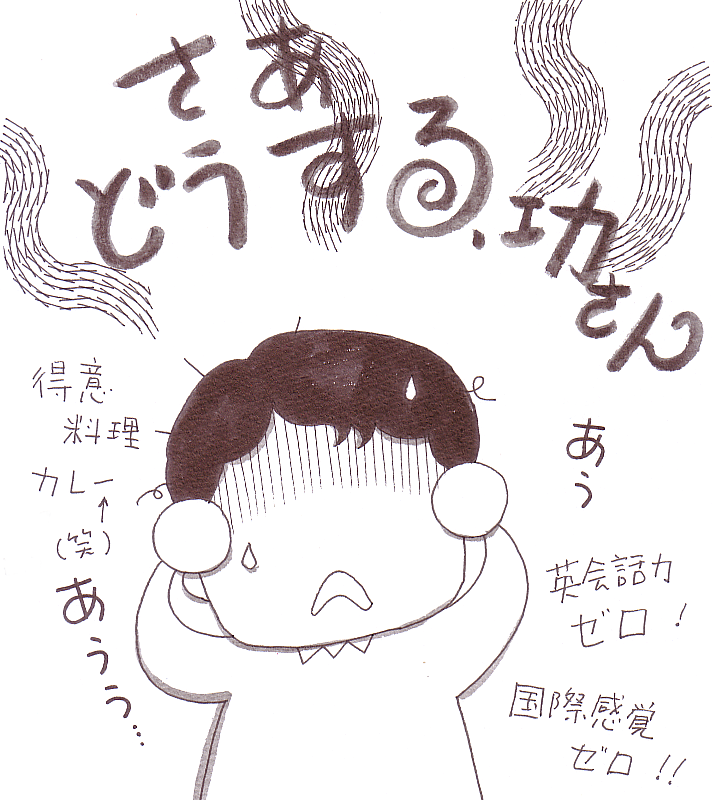 さあ
どうする、功さん
得意
料理
カレー
↑
(笑)
あうう…
あう
英会話力
ゼロ!
国際感覚
ゼロ!!